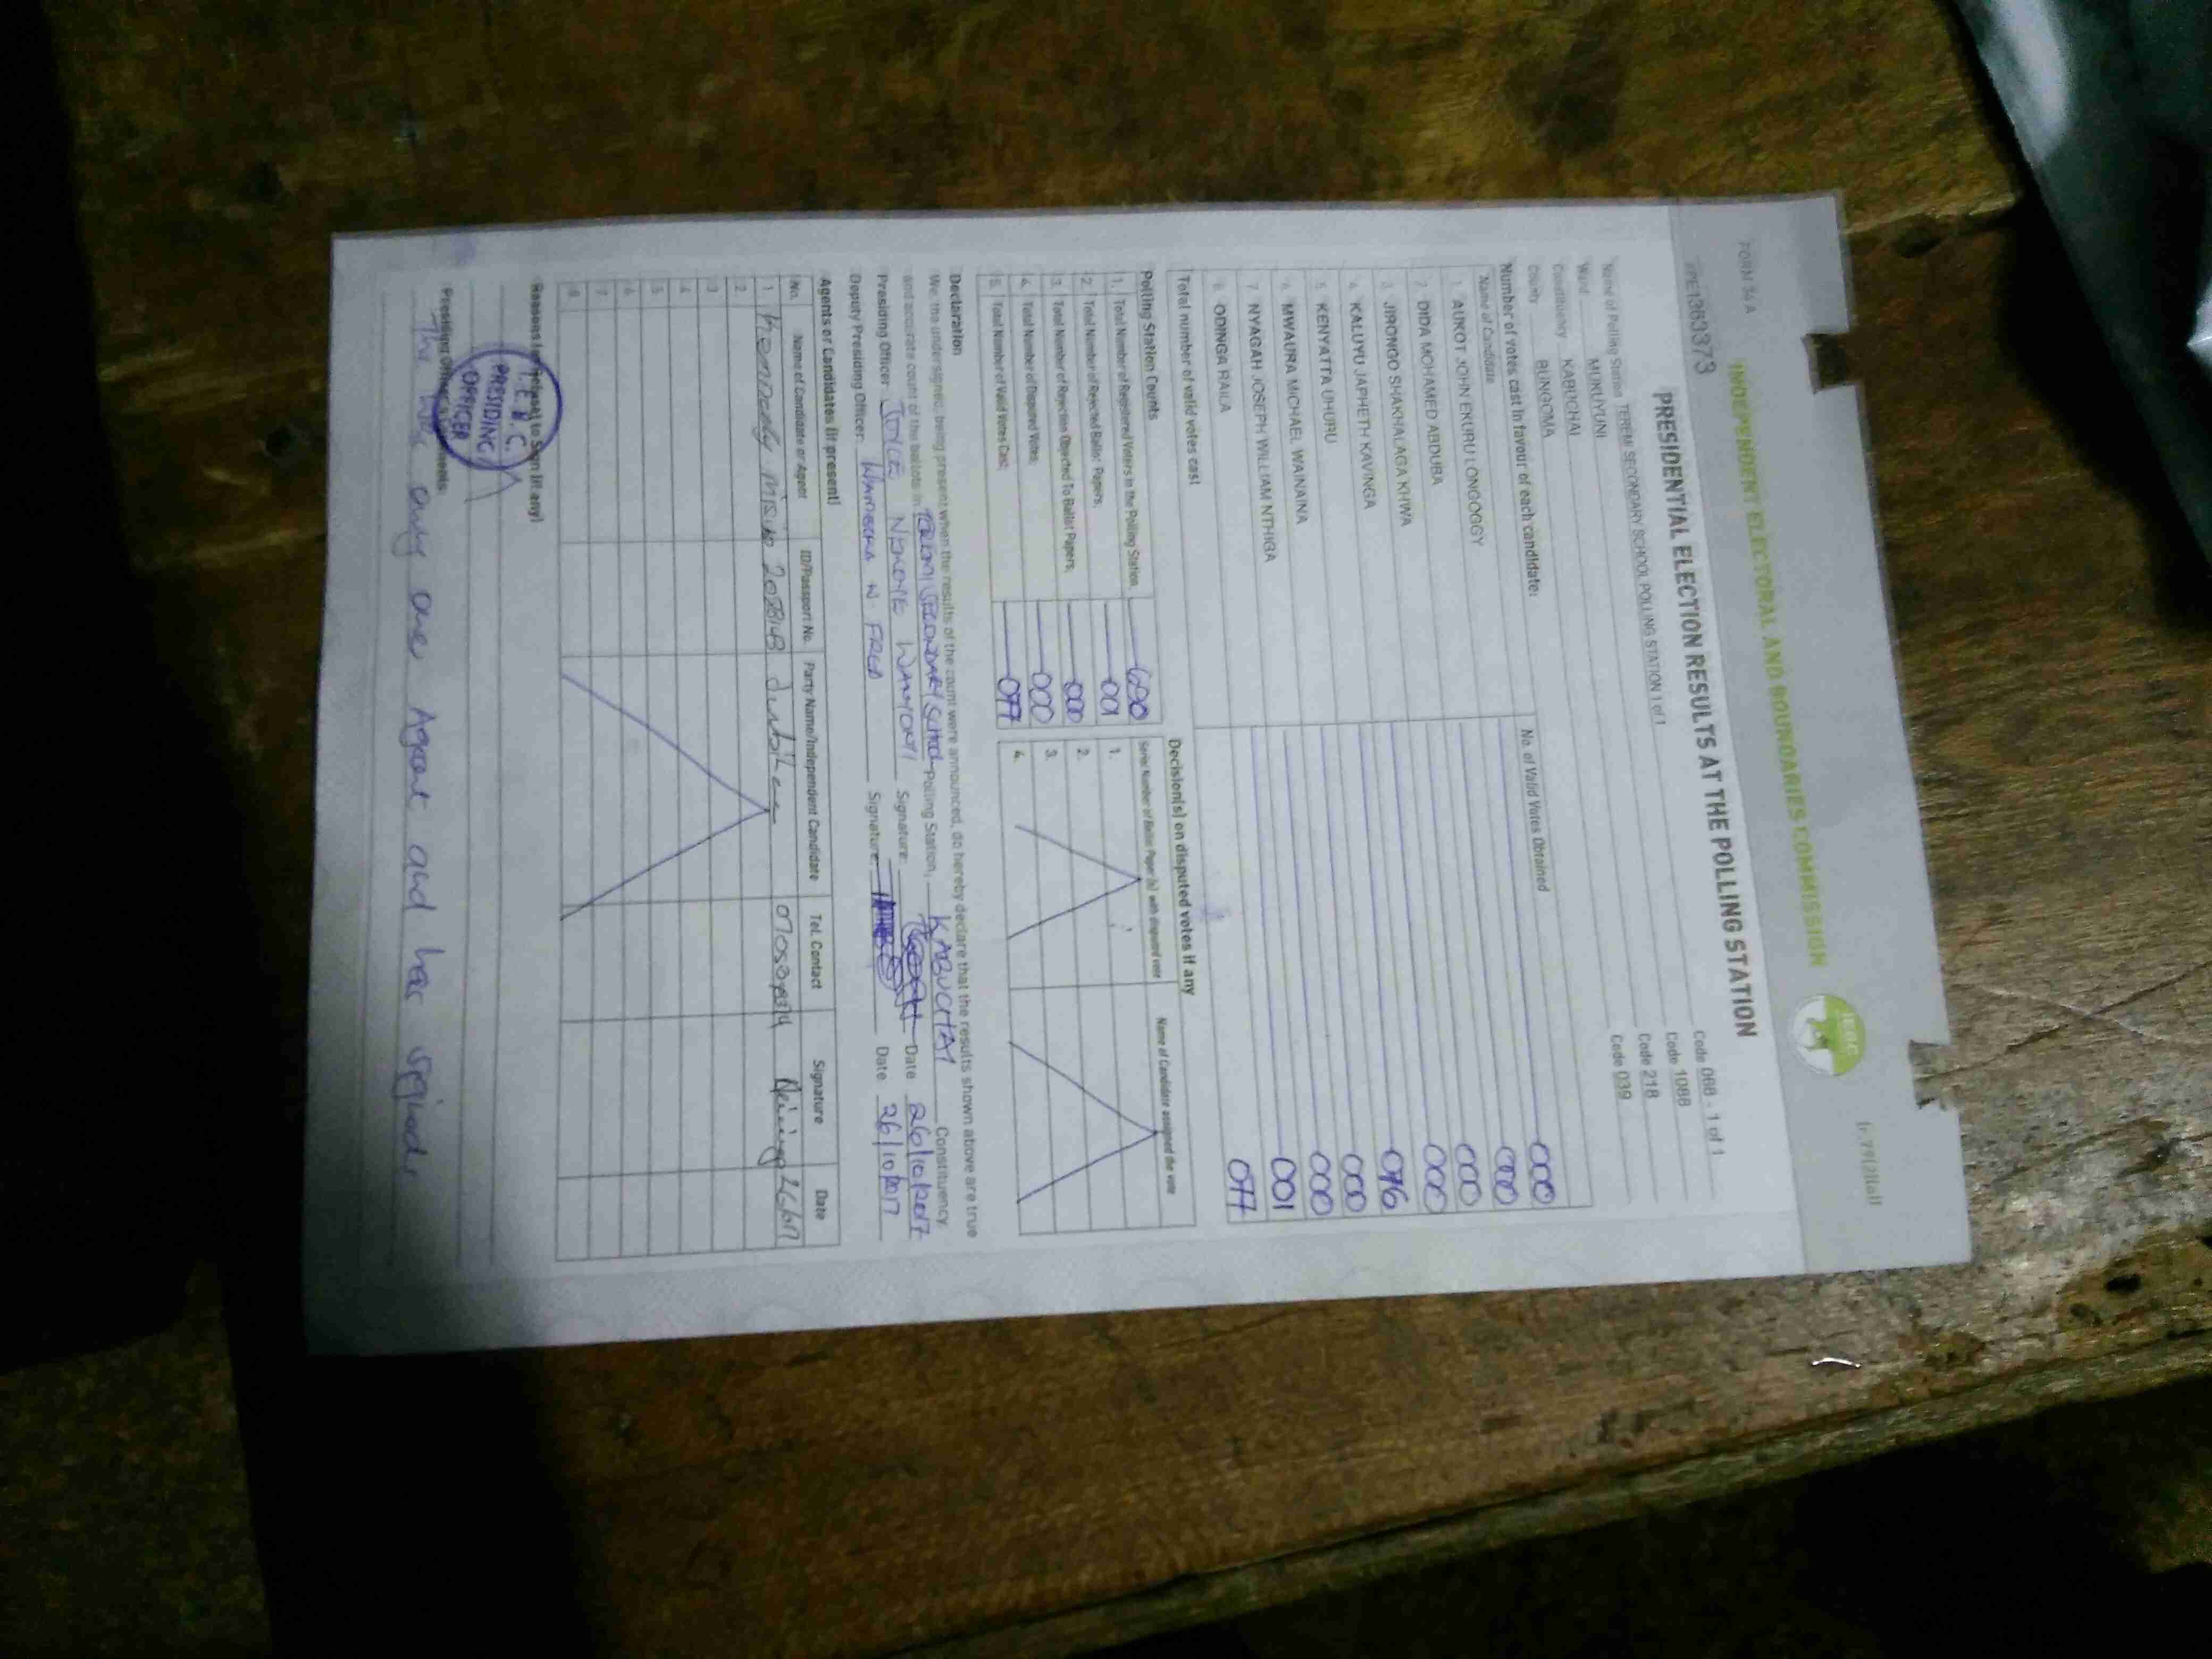 FORM 34 A
INDEPENDENT ELECTORAL AND BOUNDARIES COMMISSION
IEBC
PRESIDENTIAL ELECTION RESULTS AT THE POLLING STATION
Name of Polling Station TEREMI SECONDARY SCHOOL POLLING STATION 1 of 1 Code 068 - 1 of 1
Ward MUKUYUNI Code 1088
Constituency KABUCHAI Code 218
County BUNGOMA Code 039
Number of votes cast in favour of each candidate:
Name of Candidate No. of Valid Votes Obtained
1. AUKOT JOHN EKURU LONGOGGY 000
2. DIDA MOHAMED ABDUBA 000
3. JIRONGO SHAKHALAGA KHWA 000
4. KALUYU JAPHETH KAVINGA 000
5. KENYATTA UHURU 076
6. MWAURA MICHAEL WAINAINA 000
7. NYAGAH JOSEPH WILLIAM NTHIGA 000
8. ODINGA RAILA 001
Total number of valid votes cast 077
Polling Station Counts
1. Total Number of Registered Voters in the Polling Station 690
2. Total Number of Rejected Ballot Papers; 001
3. Total Number of Rejection Objected To Ballot Papers; 000
4. Total Number of Disputed Votes; 000
5. Total Number of Valid Votes Cast; 077
Decision(s) on disputed votes if any
Serial Number of Ballot Paper(s) with disputed vote Name of Candidate assigned the vote
1.
2.
3.
4.
Declaration
We, the undersigned, being present when the results of the count were announced, do hereby declare that the results shown above are true
and accurate count of the ballots in TEREMI SECONDARY SCHOOL Polling Station, KABUCHAI Constituency.
Presiding Officer: JOYCE WANYONYI Signature: Date 26/10/2017
Deputy Presiding Officer: FRED Signature: Date 26/10/2017
Agents or Candidates (if present)
No. Name of Candidate or Agent ID/Passport No. Party Name/Independent Candidate Tel. Contact Signature Date
1. Kennedy
2.
3.
4.
5.
6.
7.
8.
Reasons for refusal to Sign (if any)
I.E.B.C.
PRESIDING
OFFICER
Presiding Officer's comments
The was only one Agent and has signed